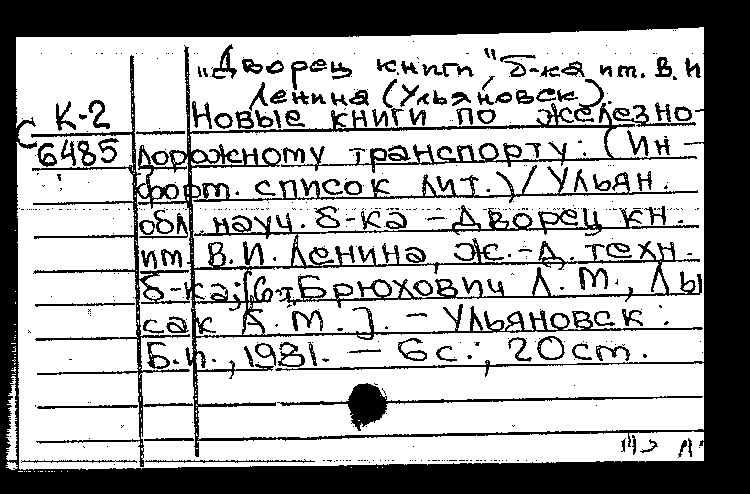 "Дворец книги", б-ка им. В. И
Ленина (Ульяновск).
К-2 Новые книги по железно-
С 6485 дорожному транспорту: (Ин-
форм. список лит.) / Ульян.
обл. науч. б-ка - Дворец кн.
им. В. И. Ленина, ж.-д. техн.
б-ка; [Сост. Брюхович Л. М., Лы
сак А. М.]. - Ульяновск:
Б. и., 1981. - 6 с.; 20 см.